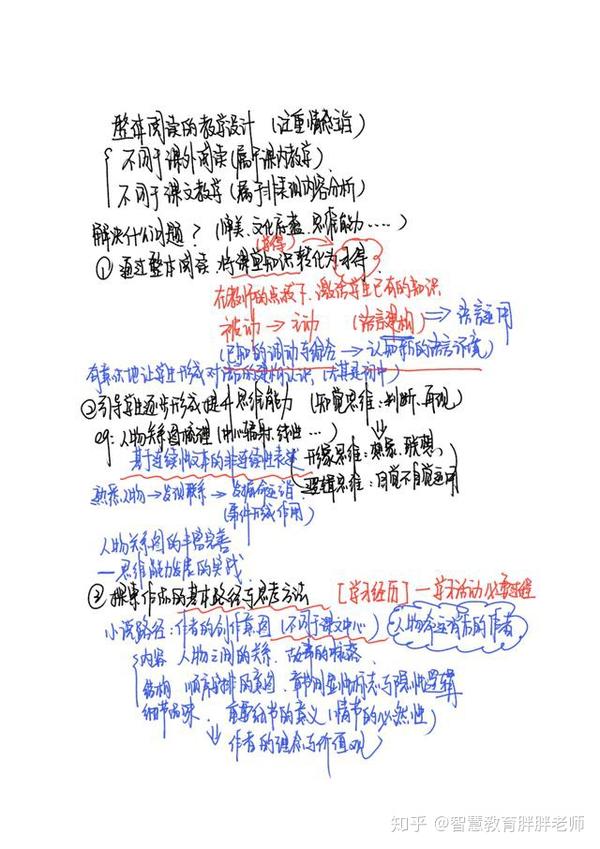 整本阅读的教学设计（注重情感主旨）
不同于课外阅读（属于课内教学）
不同于课文教学（属于非类词内容分析）
解决什么问题？（审美、文化底蕴、思维能力……）
（获得）
① 通过整本阅读，将课堂知识转化为习得
在教师的点拨下，激活学生已有的知识
被动 → 主动 （语言建构）⇒ 语言运用
（已知的调动与综合 → 认知新的语言环境）
有意识地让学生形成对作品的建构认识，（尤其是初中）
② 引导学生逐步形成提升思维能力（知觉思维：判断、再现）
eg：人物关系图梳理（中心辐射、线性…）
形象思维：想象、联想、
基于连续性文本的非连续性表述
逻辑思维：自觉不自觉运用
熟悉人物 → 发现联系 → 发掘命运
（条件形成作用）
人物关系图的丰富完善
—思维能力发展的实践
③ 探索作品的基本路径与思考方法 [学习经历] —学习活动必要过程
小说路径：作者的创作意图（不同于课文中心） 人物命运背后的作者
内容 人物之间的关系、故事的脉络
结构 顺序安排的意图，章节间显性标志与隐性逻辑
细节品味 重要细节的意义（情节的必然性）
作者的理念与价值观
知乎 @智慧教育胖胖老师